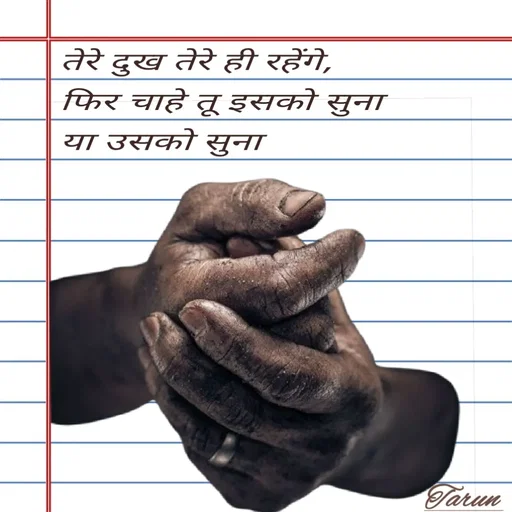 तेरे दुख तेरे ही रहेंगे,
फिर चाहे तू इसको सुना
या उसको सुना
Tarun